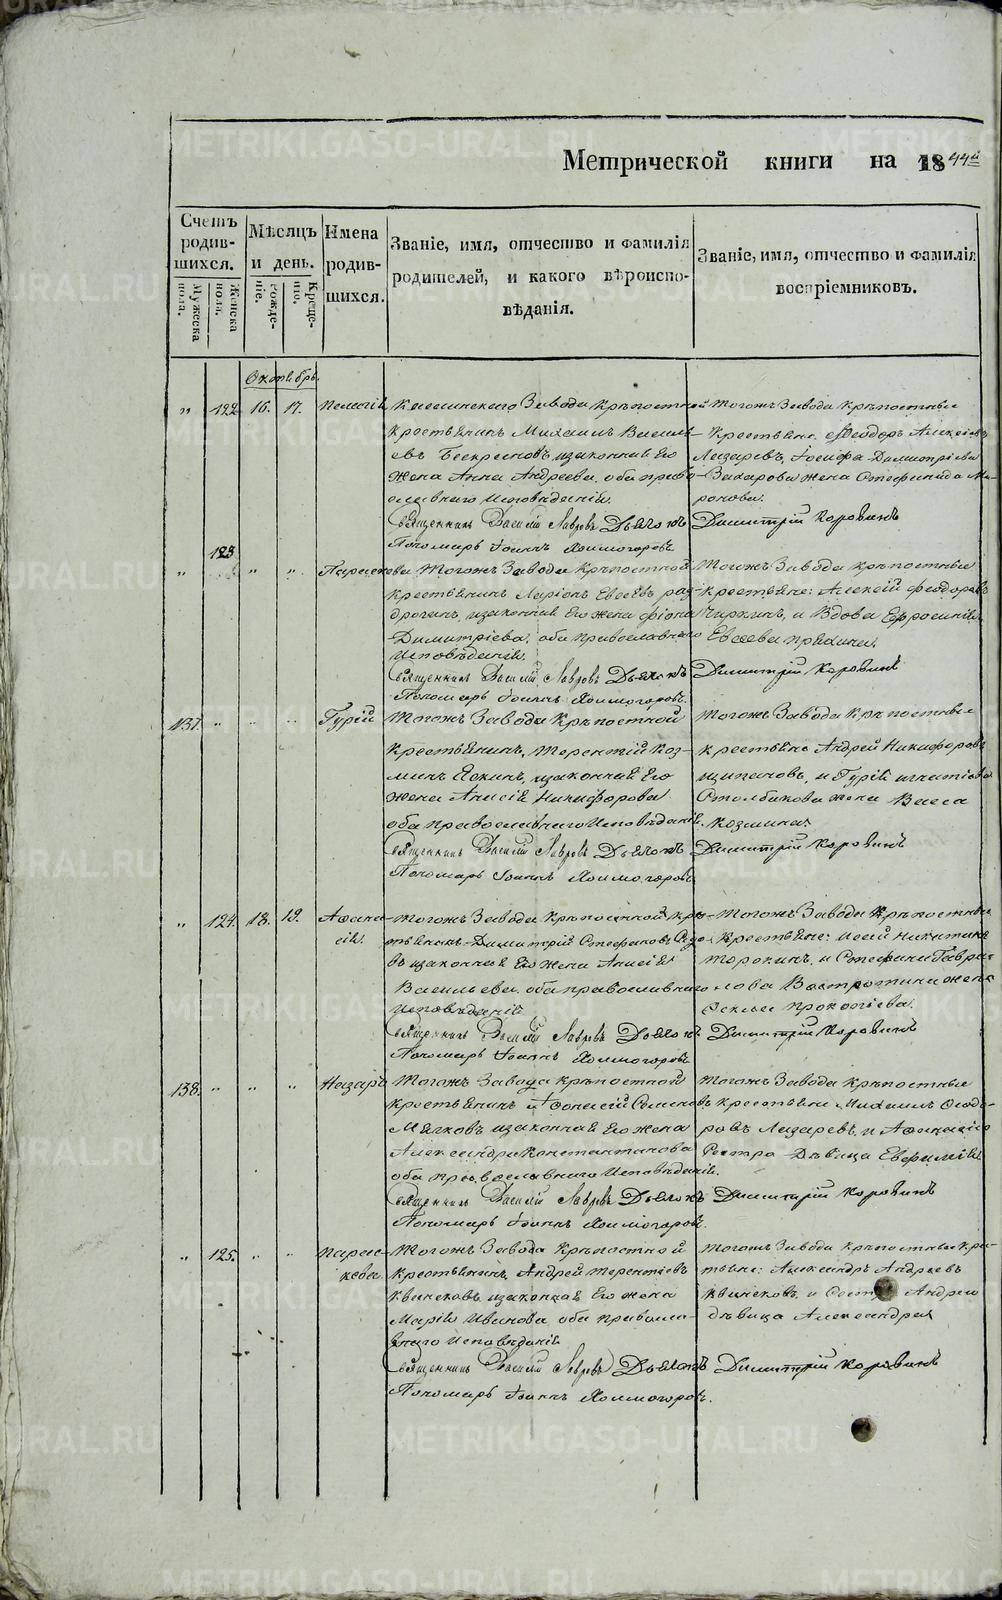 Метрической книги на 1844й
Счетъ родив-шихся.
Мужеска пола.
Женска пола.
Мѣсяцъ и день.
Рожде-нія.
Креще-нія.
Имена родив-шихся.
Званіе, имя, отчество и фамилія
родителей, и какого вѣроиспо-
вѣданія.
Званіе, имя, отчество и фамилія
воспріемниковъ.
Октябрь.
„ 122. 16. 17. Пелагія
Каслинскаго Завода Крѣпостной
Крестьянинъ Михаилъ Василь-
евъ, изаконная Его
жена Анна Андреева, оба право-
славнаго Исповѣданія.
Священникъ Василій Лавровъ Дьяконъ Димитрій Коровинъ
Пономарь Іоаннъ Холмогоровъ
Тогожъ Завода Крѣпостные
Крестьяне: Ѳеодоръ Алексѣевъ
Лазаревъ, Іосифа Димитріева
Захарова жена Стефанида Ми-
ронова.
„ 123 „ „ Параскова
Тогожъ Завода Крѣпостной
крестьянинъ Ларіонъ Евсеевъ
изаконная Его жена
Димитріева, оба православнаго
Исповѣданія.
Священникъ Василій Лавровъ Дьяконъ Димитрій Коровинъ
Пономарь Іоаннъ Холмогоровъ.
Тогожъ Завода Крѣпостные
крестьяне: Алексѣй Ѳеодоровъ
Чиркинъ, и Вдова Ефросинія
Евсеева
137. „ „ „ Гурій
Тогожъ Завода Крѣпостной
Крестьянинъ, Терентій Коз-
минъ изаконная Его
жена Анисія Никифорова
оба православнаго Исповѣданія.
Священникъ Василій Лавровъ Дьяконъ Димитрій Коровинъ
Пономарь Іоаннъ Холмогоровъ
Тогожъ Завода Крѣпостные
крестьяне Андрей Никифоровъ
Щипановъ, и Гурія Игнатіева
Столбикова жена Васса
Козмина.
„ 124. 18. 19. Аѳана-
сія.
Тогожъ Завода Крѣпостной Кре-
стьянинъ Димитрій Стефановъ
изаконная Его жена Анисія
Васильева, оба православнаго
Исповѣданія
Священникъ Василій Лавровъ Дьяконъ Димитрій Коровинъ
Пономарь Іоаннъ Холмогоровъ
Тогожъ Завода Крѣпостные
Крестьяне: Никитинъ
и Стефана Гаври-
лова Вастротина жена
Ѳекла Прокопіева.
138. „ „ „ Назаръ
Тогожъ Завода Крѣпостной
Крестьянинъ Аѳонасій Семеновъ
Мялковъ изаконная Его жена
Александра Константинова
оба православнаго Исповѣданія.
Священникъ Василій Лавровъ Дьяконъ Димитрій Коровинъ
Пономарь Іоаннъ Холмогоровъ.
Тогожъ Завода Крѣпостные
крестьяне Михаилъ Ѳеодо-
ровъ Лазаревъ, и Аѳанасія
Сестра Дѣвица Евфимія
„ 125. „ „ Парас-
кева
Тогожъ Завода Крѣпостной
крестьянинъ, Андрей Терентіевъ
Квасковъ изаконная Его жена
Марія Иванова оба правосла-
внаго Исповѣданія
Священникъ Василій Лавровъ Дьяконъ Димитрій Коровинъ
Пономарь Іоаннъ Холмогоровъ.
Тогожъ Завода Крѣпостные Кре-
стьяне: Александръ Андреевъ
Квасковъ, и Сестра Андрея
дѣвица Александра
METRIKI.GASO-URAL.RU